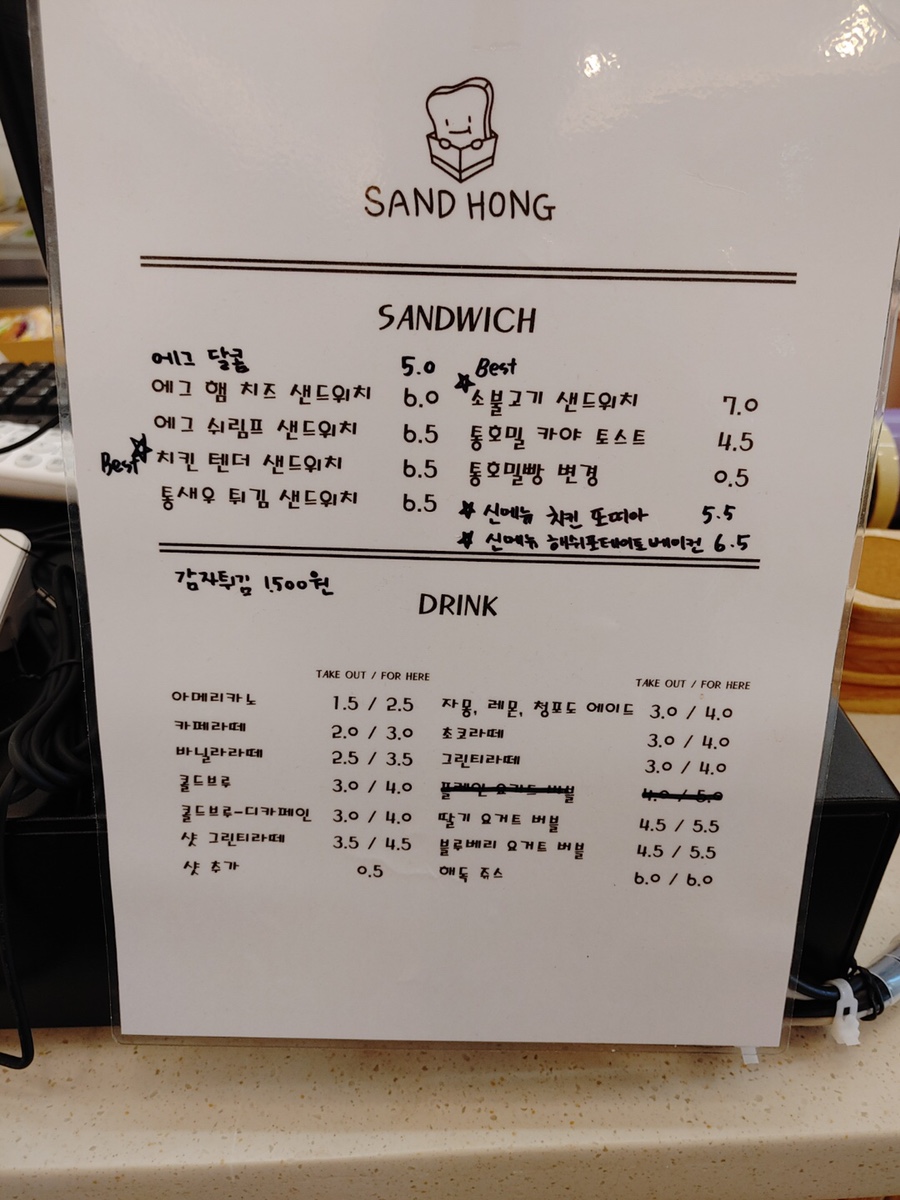 SAND HONG
SANDWICH
에그 달콤 5.0
에그 햄 치즈 샌드위치 6.0
에그 쉬림프 샌드위치 6.5
Best 치킨 텐더 샌드위치 6.5
통새우 튀김 샌드위치 6.5
Best
소불고기 샌드위치 7.0
통호밀 카야 토스트 4.5
통호밀빵 변경 0.5
신메뉴 치킨 또띠아 5.5
신메뉴 해쉬포테이토베이컨 6.5
감자튀김 1,500원
DRINK
TAKE OUT / FOR HERE
아메리카노 1.5 / 2.5
카페라떼 2.0 / 3.0
바닐라라떼 2.5 / 3.5
콜드브루 3.0 / 4.0
콜드브루-디카페인 3.0 / 4.0
샷 그린티라떼 3.5 / 4.5
샷 추가 0.5
TAKE OUT / FOR HERE
자몽, 레몬, 청포도 에이드 3.0 / 4.0
초코라떼 3.0 / 4.0
그린티라떼 3.0 / 4.0
플레인 요거트 버블 4.0 / 5.0
딸기 요거트 버블 4.5 / 5.5
블루베리 요거트 버블 4.5 / 5.5
해독 쥬스 6.0 / 6.0